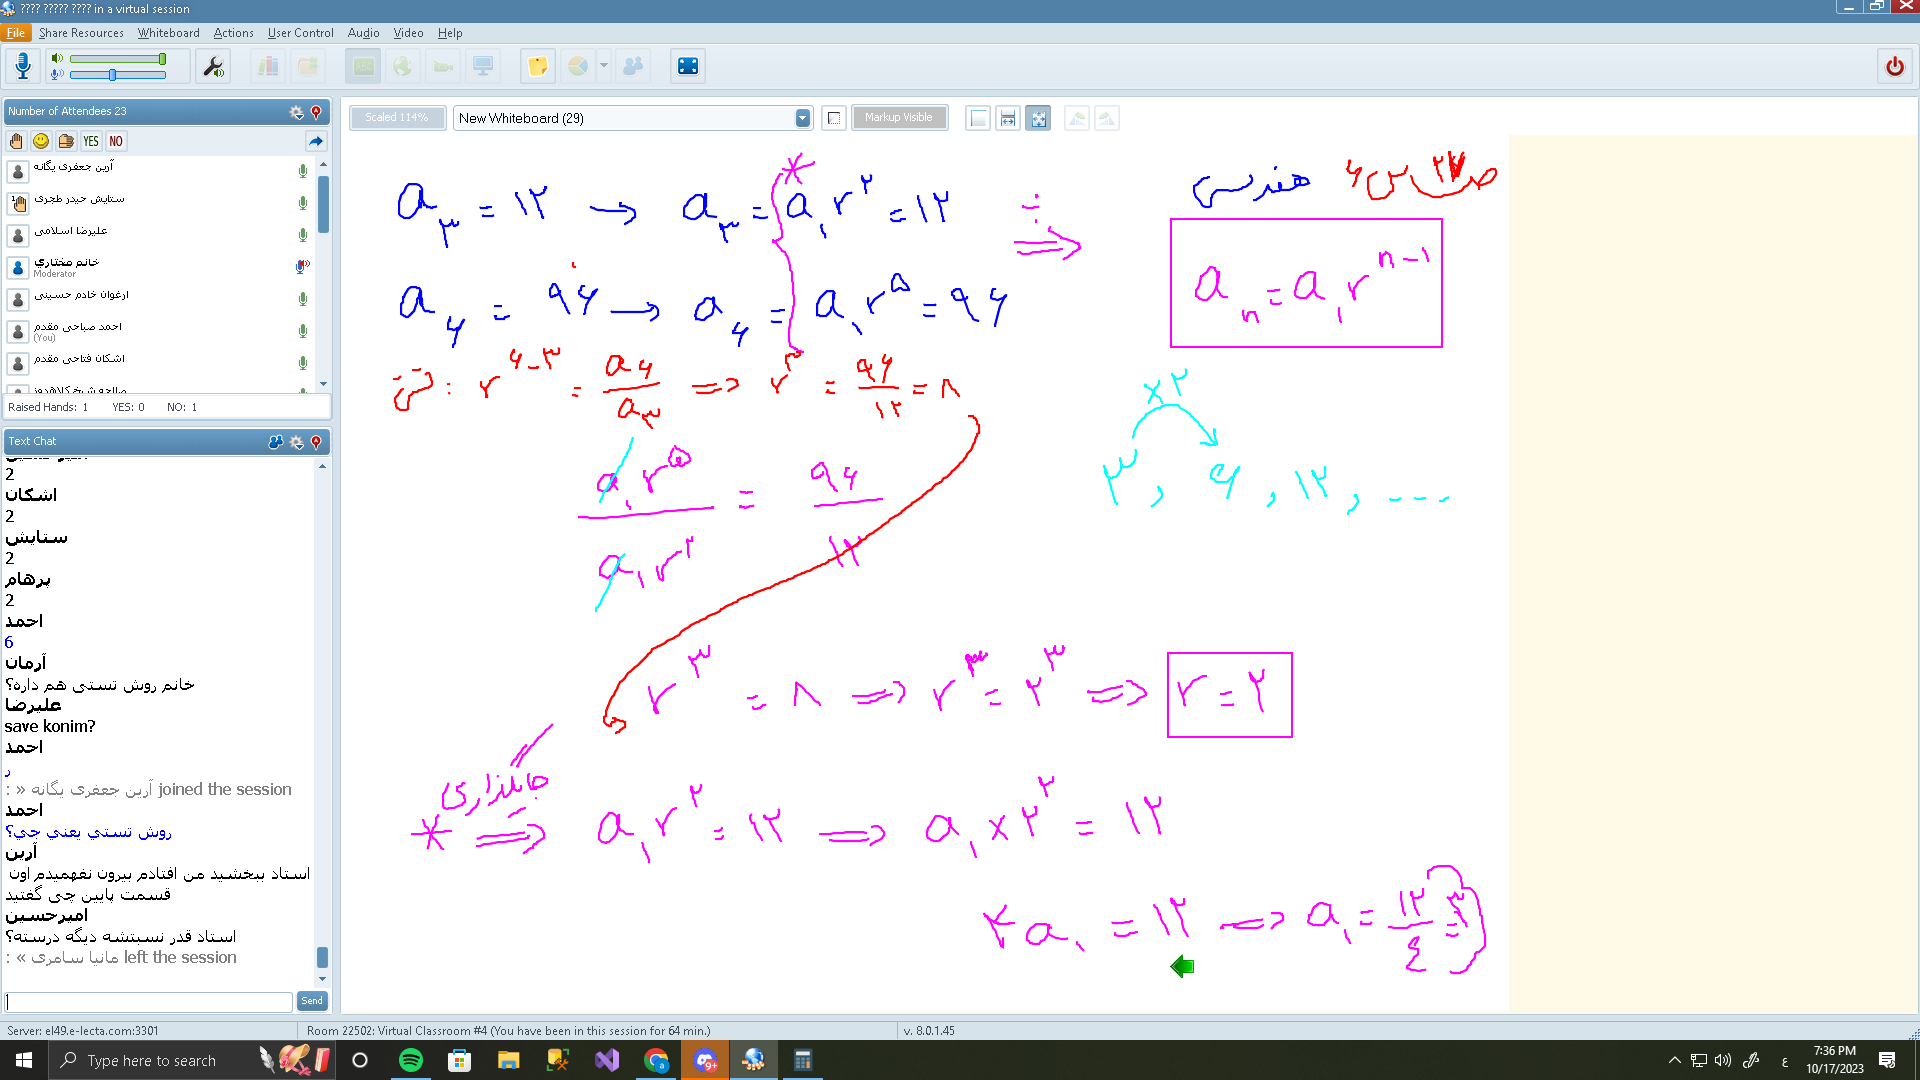 ???? ????? ???? in a virtual session
File Share Resources Whiteboard Actions User Control Audio Video Help
Number of Attendees 23
YES NO
آرین جعفری یگانه
ستایش حیدر طجری
علیرضا اسلامی
خانم مختاري
Moderator
ارغوان خادم حسینی
احمد صباحی مقدم
(You)
اشکان فتاحی مقدم
Raised Hands: 1 YES: 0 NO: 1
Text Chat
2
اشکان
2
ستایش
2
پرهام
2
احمد
6
آرمان
خانم روش تستی هم داره؟
علیرضا
save konim?
احمد
ر
: » آرین جعفری یگانه joined the session
احمد
روش تستي يعني چي؟
آرین
استاد ببخشید من افتادم بیرون نفهمیدم اون
قسمت پایین چی گفتید
امیرحسین
استاد قدر نسبتشه دیگه درسته؟
: » مانیا سامری left the session
Send
Scaled 114% New Whiteboard (29) Markup Visible
هندسی
a₃ = ۱۲ → a₃ = a₁r² = ۱۲ ÷ ⇒
aₙ = a₁rⁿ⁻¹
a₆ = ۹۶ → a₆ = a₁r⁵ = ۹۶
r⁶⁻³ = a₆/a₃ ⇒ r³ = ۹۶/۱۲ = ۸
×۲
۳ , ۶ , ۱۲ , ...
a₁r⁵/a₁r² = ۹۶/۱۲
r³ = ۸ ⇒ r³ = ۲³ ⇒ r = ۲
جایگذاری
* ⇒ a₁r² = ۱۲ ⇒ a₁×۲² = ۱۲
۴a₁ = ۱۲ ⇒ a₁ = ۱۲/۴ = ۳
Server: el49.e-lecta.com:3301 Room 22502: Virtual Classroom #4 (You have been in this session for 64 min.) v. 8.0.1.45
Type here to search
9+
ع
7:36 PM
10/17/2023